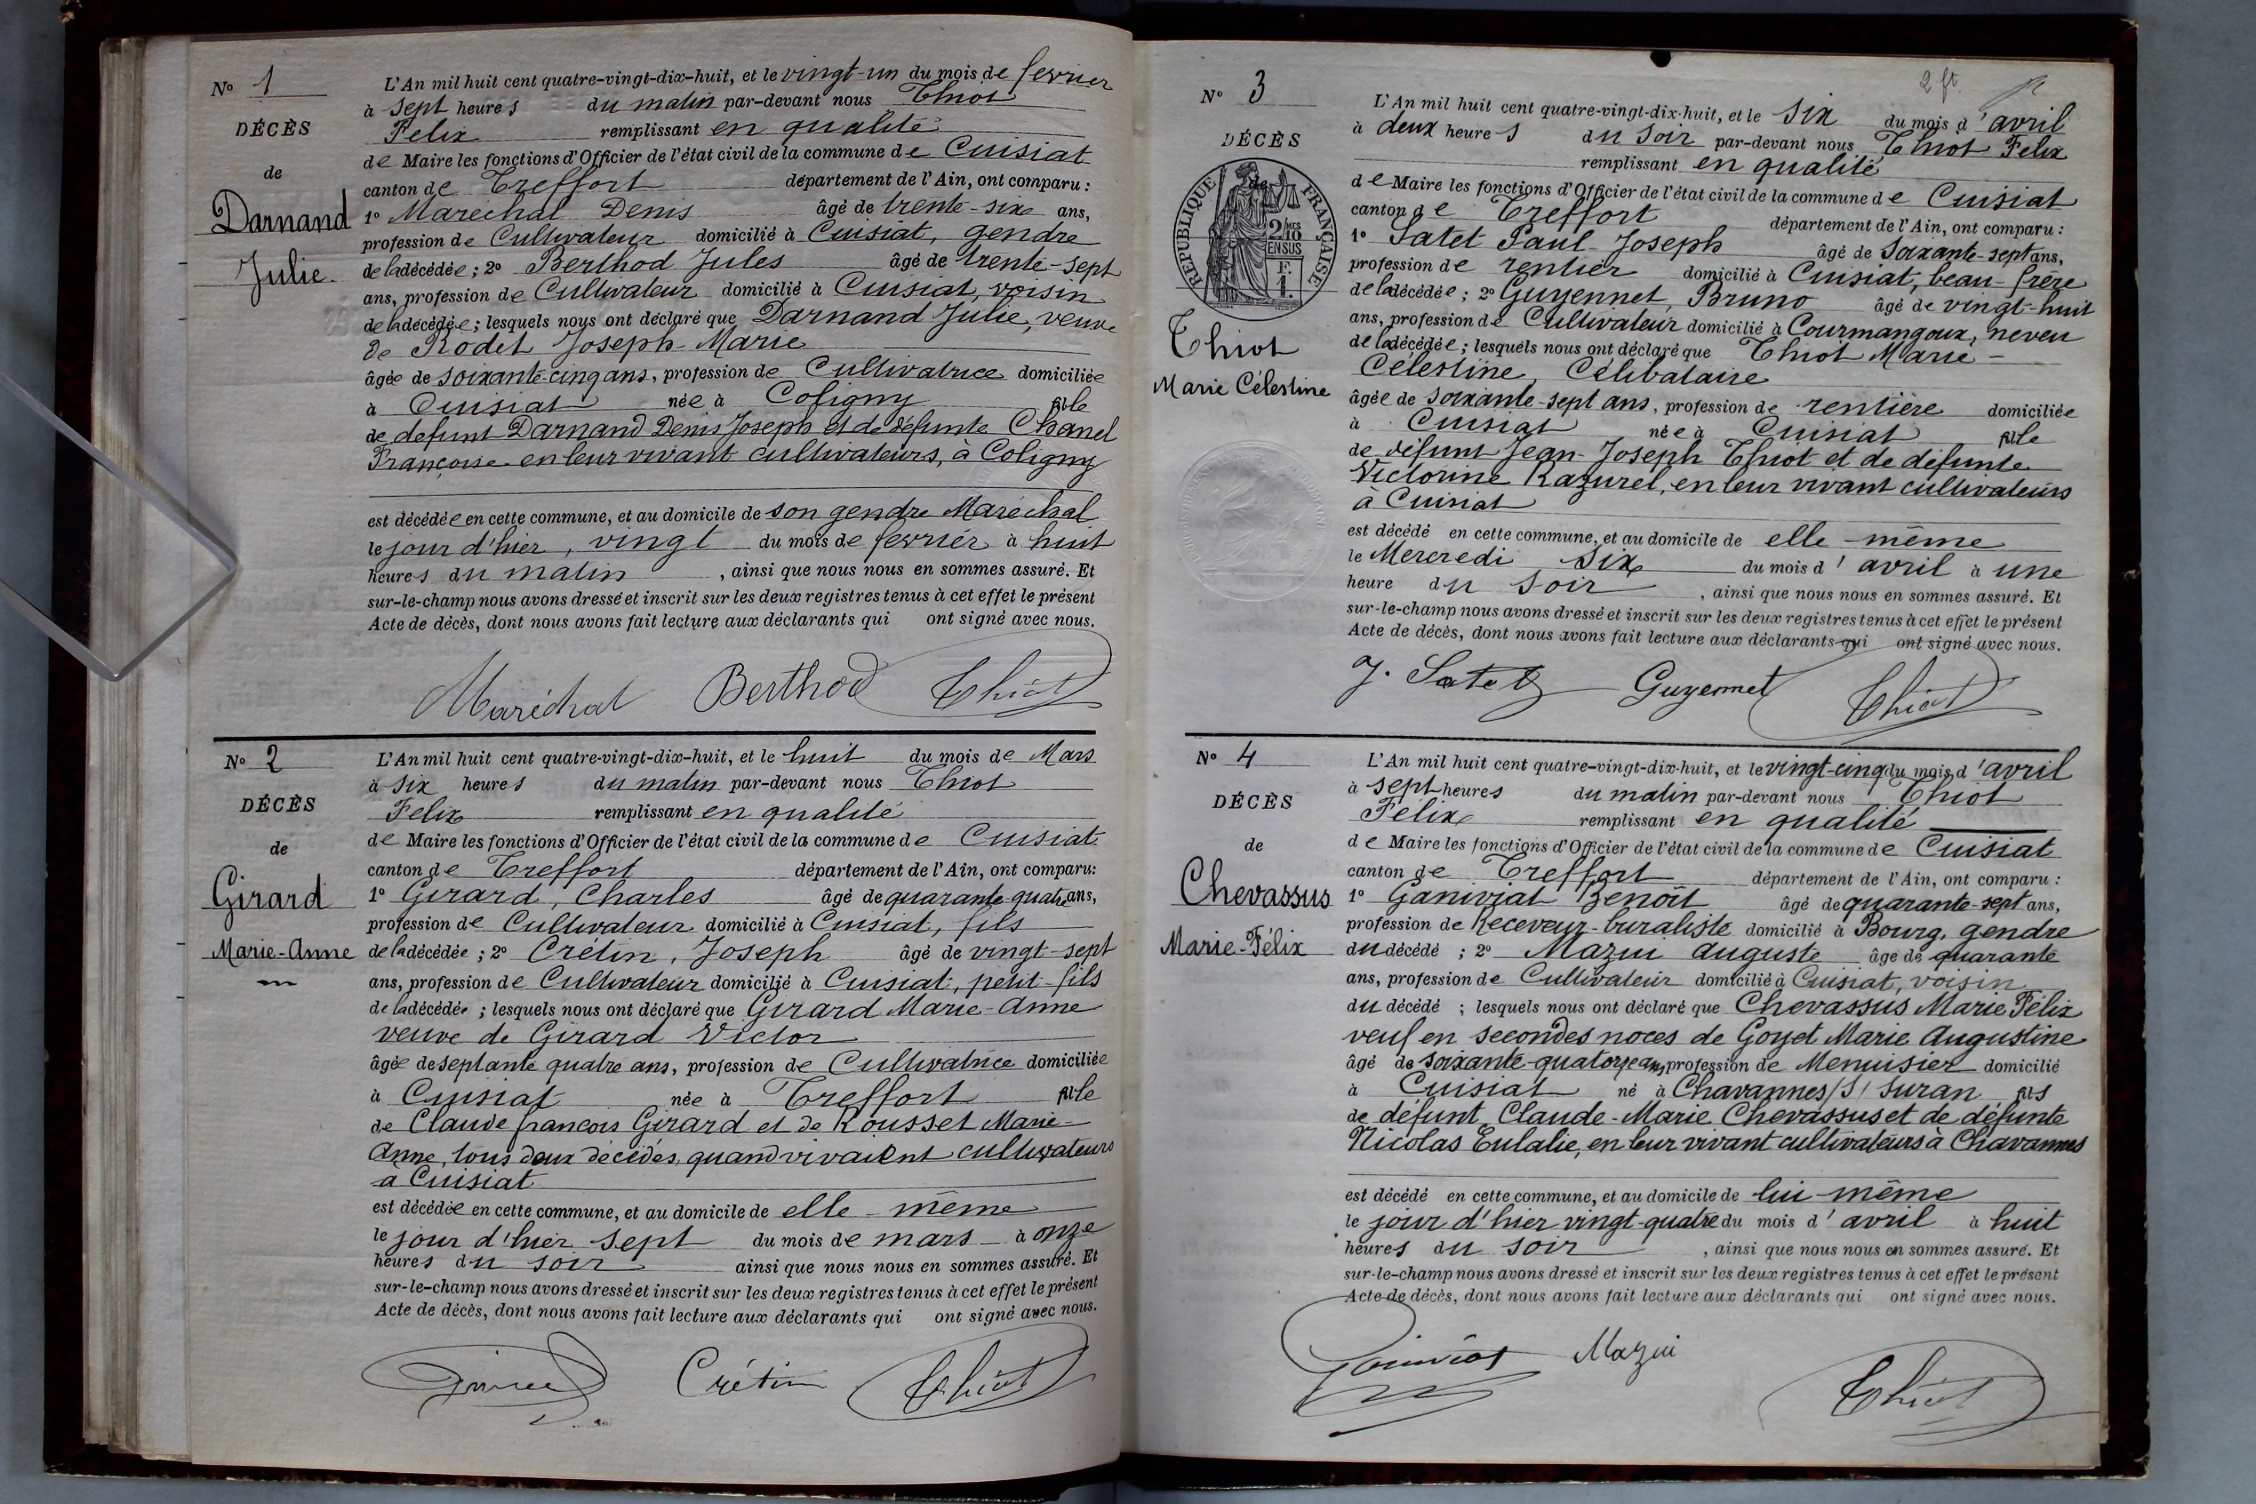 N° 1
DÉCÈS
de
Darnand
Julie.
L'An mil huit cent quatre-vingt-dix-huit, et le vingt-un du mois de fevrier
à sept heures du matin par-devant nous Thiot
Felix remplissant en qualité
de Maire les fonctions d'Officier de l'état civil de la commune de Cuisiat
canton de Treffort département de l'Ain, ont comparu :
1° Maréchal Denis âgé de trente-six ans,
profession de Cultivateur domicilié à Cuisiat, gendre
de la décédée ; 2° Berthod Jules âgé de trente-sept
ans, profession de Cultivateur domicilié à Cuisiat, voisin
de la décédée ; lesquels nous ont déclaré que Darnand Julie, veuve
de Rodet Joseph-Marie
âgée de soixante-cinq ans, profession de Cultivatrice domiciliée
à Cuisiat née à Coligny fille
de defunt Darnand Denis Joseph et de défunte Chanel
Françoise en leur vivant cultivateurs, à Coligny
est décédée en cette commune, et au domicile de son gendre Maréchal
le jour d'hier, vingt du mois de fevrier à huit
heures du matin, ainsi que nous nous en sommes assuré. Et
sur-le-champ nous avons dressé et inscrit sur les deux registres tenus à cet effet le présent
Acte de décès, dont nous avons fait lecture aux déclarants qui ont signé avec nous.
Maréchal Berthod Thiot
N° 2
DÉCÈS
de
Girard
Marie-Anne
L'An mil huit cent quatre-vingt-dix-huit, et le huit du mois de Mars
à six heures du matin par-devant nous Thiot
Felix remplissant en qualité
de Maire les fonctions d'Officier de l'état civil de la commune de Cuisiat
canton de Treffort département de l'Ain, ont comparu:
1° Girard, Charles âgé de quarante quatre ans,
profession de Cultivateur domicilié à Cuisiat, fils
de la décédée ; 2° Crétin, Joseph âgé de vingt-sept
ans, profession de Cultivateur domicilié à Cuisiat, petit-fils
de la décédée ; lesquels nous ont déclaré que Girard Marie-Anne
veuve de Girard Victor
âgée de septante quatre ans, profession de Cultivatrice domiciliée
à Cuisiat née à Treffort fille
de Claude françois Girard et de Rousset Marie-
Anne, tous deux décédés, quand vivaient cultivateurs
à Cuisiat
est décédée en cette commune, et au domicile de elle-même
le jour d'hier sept du mois de mars à onze
heures du soir ainsi que nous nous en sommes assuré. Et
sur-le-champ nous avons dressé et inscrit sur les deux registres tenus à cet effet le présent
Acte de décès, dont nous avons fait lecture aux déclarants qui ont signé avec nous.
Crétin Thiot
2 ft
N° 3
DÉCÈS
de
RÉPUBLIQUE FRANÇAISE
2 MES
10
EN SUS
F.
1.
Thiot
Marie Célestine
L'An mil huit cent quatre-vingt-dix-huit, et le six du mois d'avril
à deux heures du soir par-devant nous Thiot Felix
remplissant en qualité
de Maire les fonctions d'Officier de l'état civil de la commune de Cuisiat
canton de Treffort département de l'Ain, ont comparu :
1° Satet Paul-Joseph âgé de soixante-sept ans,
profession de rentier domicilié à Cuisiat, beau-frère
de la décédée ; 2° Guyennet, Bruno âgé de vingt-huit
ans, profession de Cultivateur domicilié à Courmangoux, neveu
de la décédée ; lesquels nous ont déclaré que Thiot Marie-
Célestine, Célibataire
âgée de soixante-sept ans, profession de rentière domiciliée
à Cuisiat née à Cuisiat fille
de défunt Jean-Joseph Thiot et de défunte
Victorine Razurel, en leur vivant cultivateurs
à Cuisiat
est décédé en cette commune, et au domicile de elle-même
le Mercredi six du mois d'avril à une
heure du soir, ainsi que nous nous en sommes assuré. Et
sur-le-champ nous avons dressé et inscrit sur les deux registres tenus à cet effet le présent
Acte de décès, dont nous avons fait lecture aux déclarants qui ont signé avec nous.
J. Satet Guyennet Thiot
N° 4
DÉCÈS
de
Chevassus
Marie-Félix
L'An mil huit cent quatre-vingt-dix-huit, et le vingt-cinq du mois d'avril
à sept heures du matin par-devant nous Thiot
Félix remplissant en qualité
de Maire les fonctions d'Officier de l'état civil de la commune de Cuisiat
canton de Treffort département de l'Ain, ont comparu :
1° Ganiviat Benoît âgé de quarante-sept ans,
profession de Receveur-buraliste domicilié à Bourg, gendre
du décédé ; 2° Mazui auguste âgé de quarante
ans, profession de Cultivateur domicilié à Cuisiat, voisin
du décédé ; lesquels nous ont déclaré que Chevassus Marie Félix
veuf en secondes noces de Goyet Marie Augustine
âgé de soixante-quatorze ans, profession de Menuisier domicilié
à Cuisiat né à Chavannes/S/Suran fils
de défunt Claude-Marie Chevassus et de défunte
Nicolas Eulalie, en leur vivant cultivateurs à Chavannes
est décédé en cette commune, et au domicile de lui-même
le jour d'hier vingt-quatre du mois d'avril à huit
heures du soir, ainsi que nous nous en sommes assuré. Et
sur-le-champ nous avons dressé et inscrit sur les deux registres tenus à cet effet le présent
Acte de décès, dont nous avons fait lecture aux déclarants qui ont signé avec nous.
Mazui
Thiot